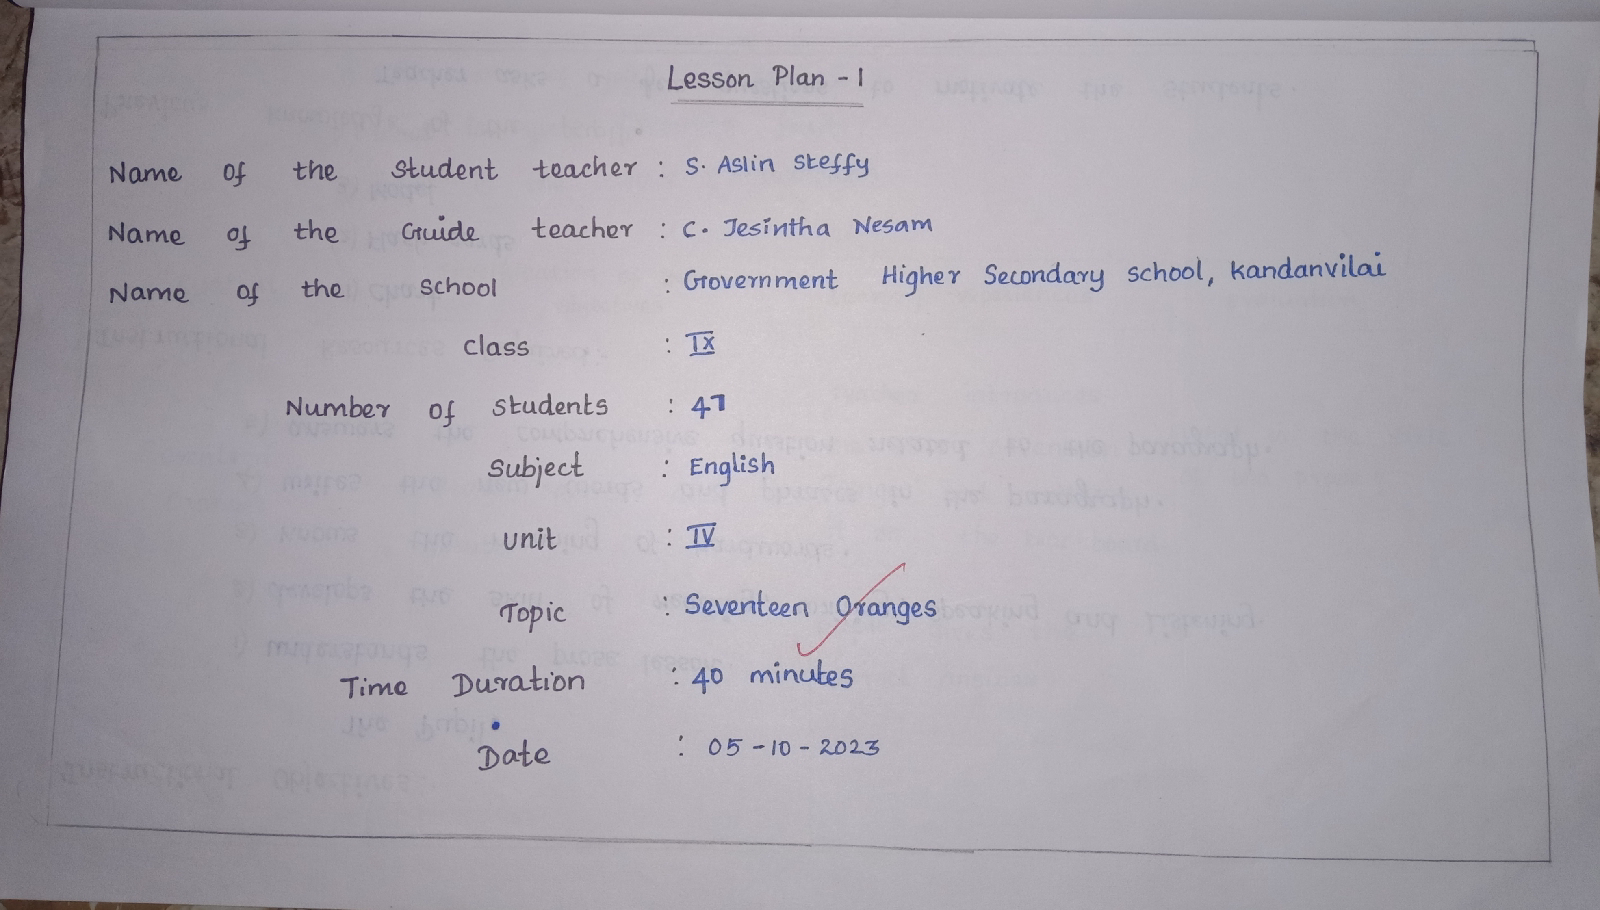 Lesson Plan - 1
Name of the Student teacher : S. Aslin Steffy
Name of the Guide teacher : C. Jesintha Nesam
Name of the School : Government Higher Secondary School, Kandanvilai
class : IX
Number of Students : 47
Subject : English
Unit : IV
Topic : Seventeen Oranges
Time Duration : 40 minutes
Date : 05-10-2023